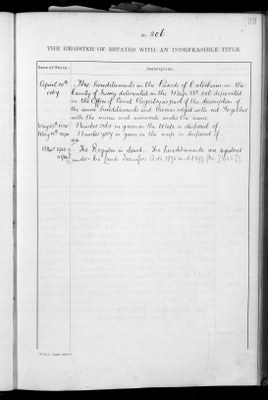 No. 206
THE REGISTER OF ESTATES WITH AN INDEFEASIBLE TITLE.
Date of Entry. Description.
April 10th The hereditaments in the Parish of Caterham in the
1867 County of Surrey delineated on the Map No. 206 deposited
in the Office of Land Registry as part of the description of
the same hereditaments and thereon edged with red Together
with the mines and minerals under the same
Number on the Map is disposed of.
Number on the map is disposed of.
The Register is closed. The hereditaments are registered
under the Land Transfer Acts, 1875 and 1897